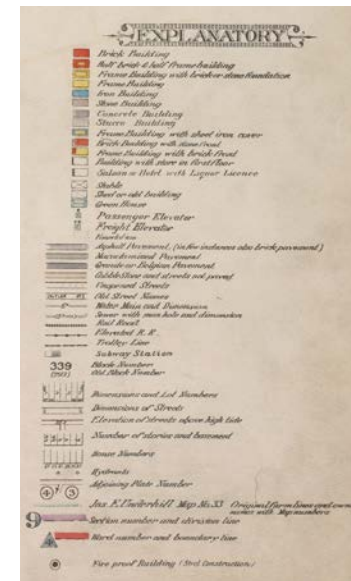 EXPLANATORY
Brick Building
Half brick & half frame building
Frame Building with brick or stone foundation
Frame Building
Iron Building
Stone Building
Concrete Building
Stucco Building
Frame Building with sheet iron cover
Brick Building with stone front
Frame Building with brick front
Building with store in first floor
Saloon or Hotel with Liquor Licence
Stable
Shed or old building
Green House
Passenger Elevator
Freight Elevator
Asphalt Pavement, (in few instances also brick pavement)
Macadamized Pavement
Granite or Belgian Pavement
Cobble Stone and streets not paved
Unopened Streets
Old Street Names
Water Main and Dimension
Sewer with man hole and dimension
Rail Road
Elevated R. R.
Trolley Line
Subway Station
339 Block Number
Old Block Number
Dimensions and Lot Numbers
Dimensions of Streets
Elevation of streets above high tide
Number of stories and basement
House Numbers
Hydrants
4 3 Adjoining Plate Number
Jas. E. Underhill Map No. 33 Original farm lines and
names with Map numbers
9 Section number and division line
Ward number and boundary line
Fire proof Building (Steel Construction)